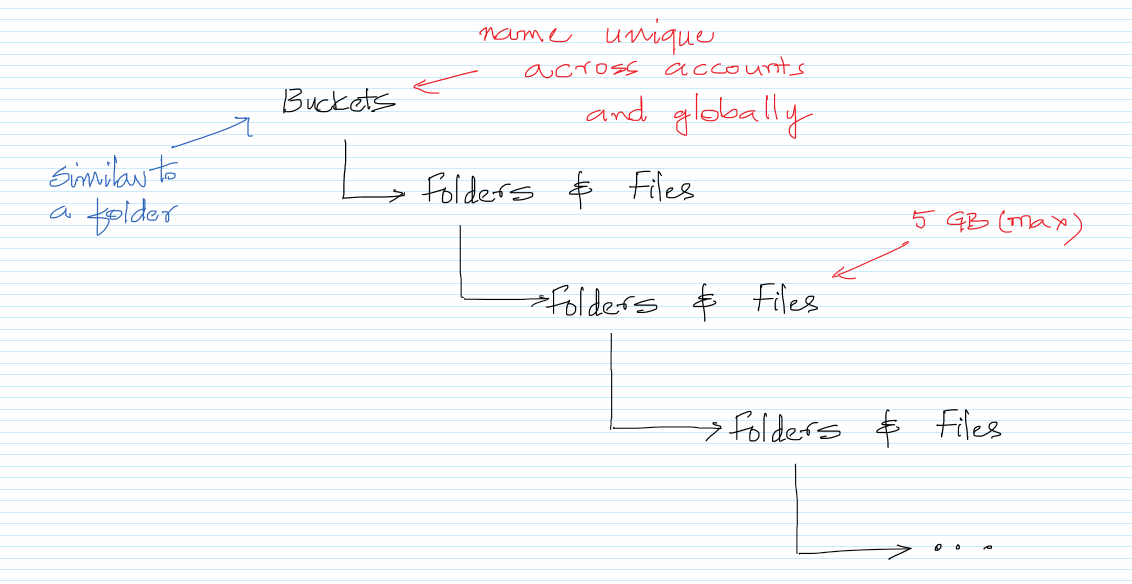 name unique
across accounts
and globally
Buckets
similar to
a folder
Folders & Files
5 GB (max)
Folders & Files
Folders & Files
...